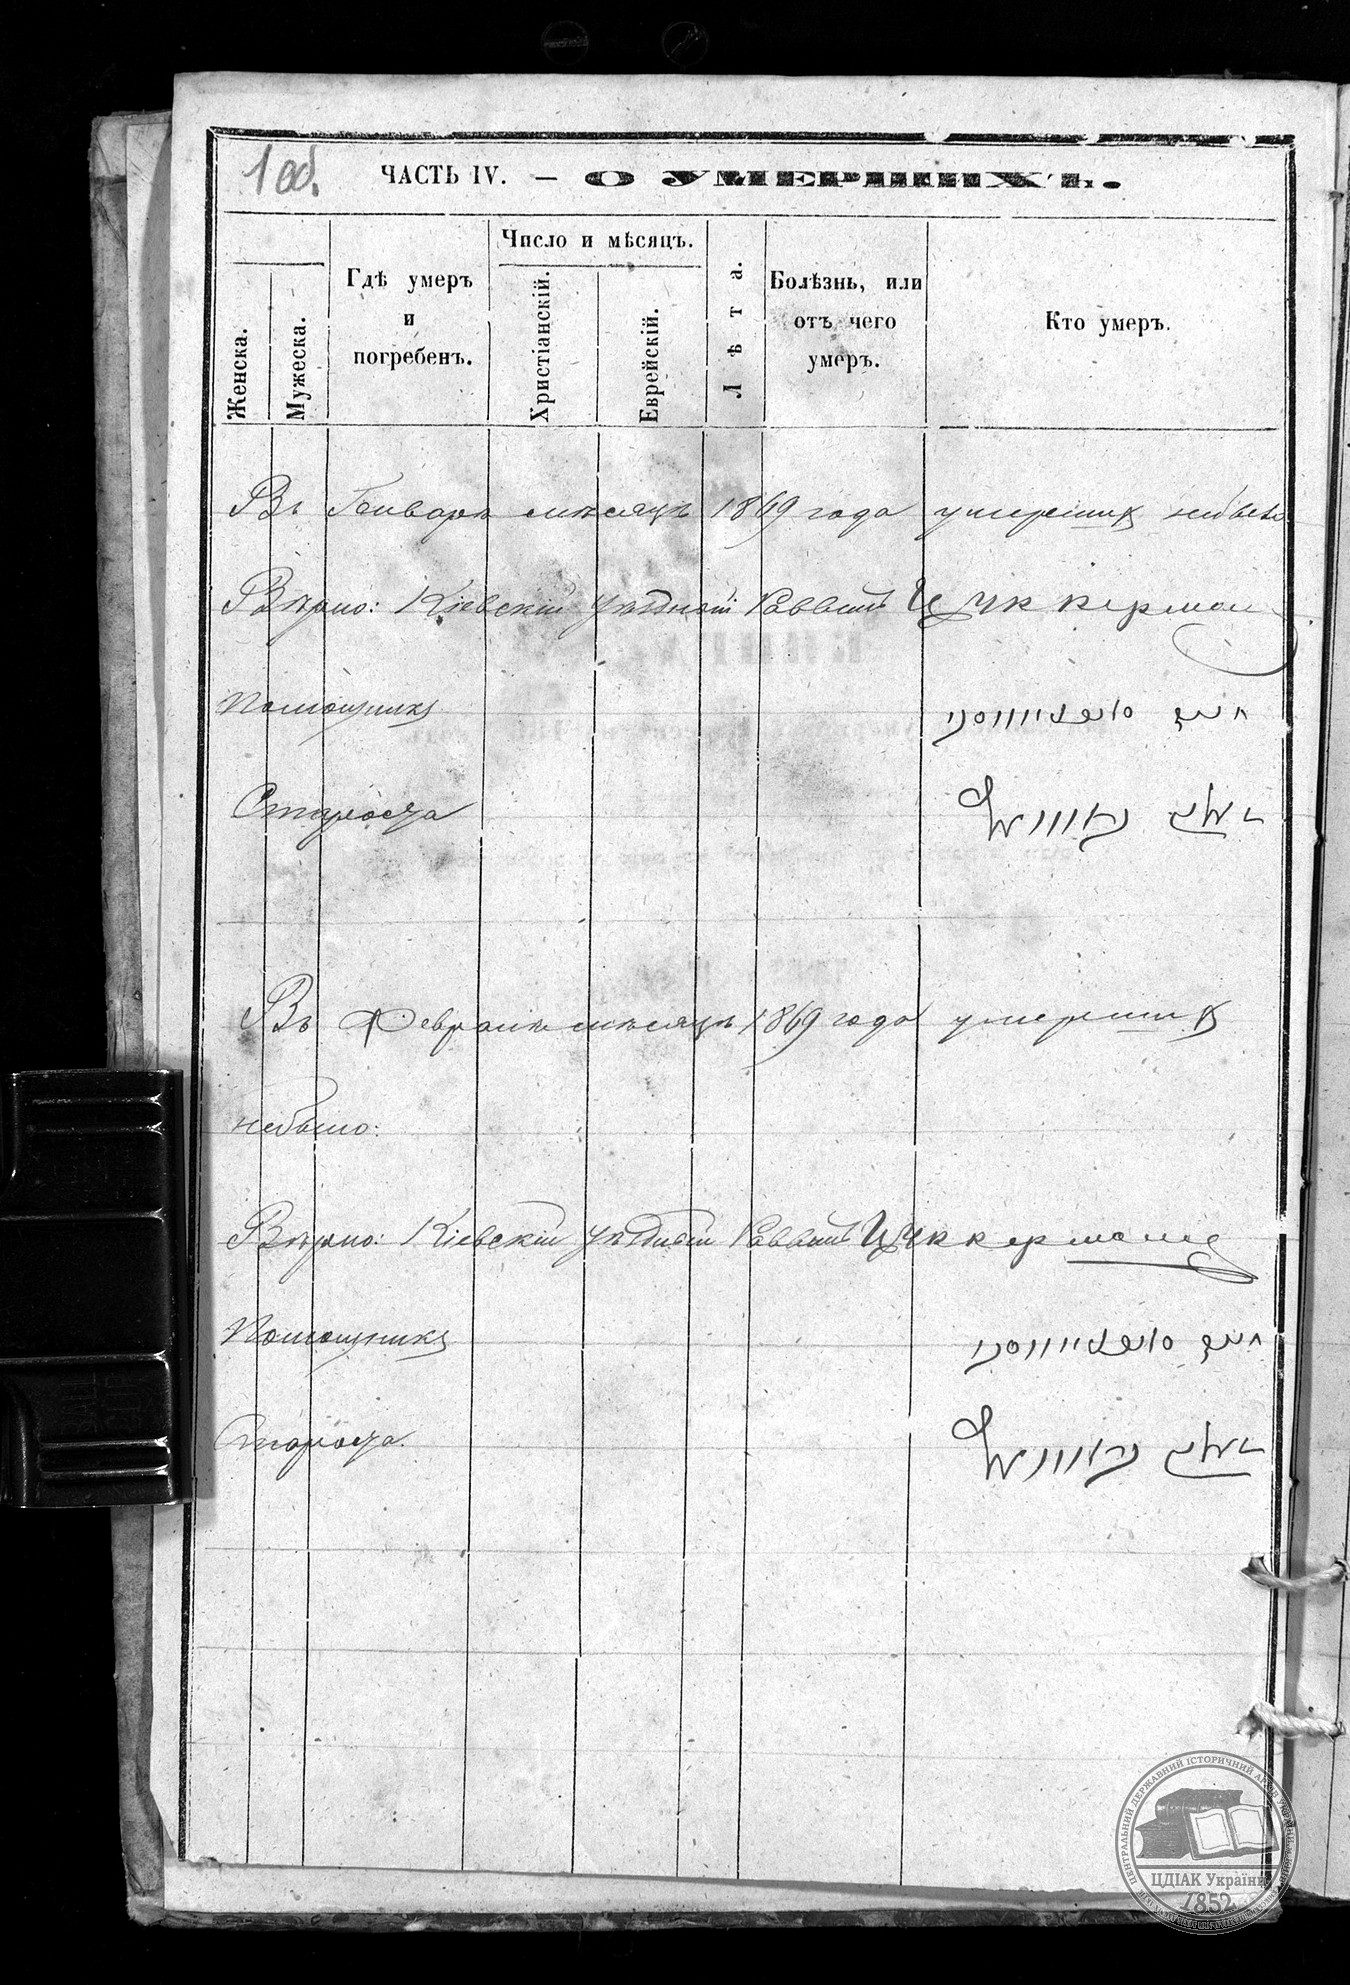 1 об.
ЧАСТЬ IV. — О УМЕРШИХЪ.
Женска.
Мужеска.
Гдѣ умеръ
и
погребенъ.
Число и мѣсяцъ.
Христіанскій.
Еврейскій.
Лѣта.
Болѣзнь, или
отъ чего
умеръ.
Кто умеръ.
Въ Генваре месяцѣ 1869 года умершихъ небыло
Вѣрно: Кіевскій уѣздный Раввинъ Цуккерман
Помощникъ
Староста
Въ Феврале месяцѣ 1869 года умершихъ
небыло:
Вѣрно: Кіевскій уѣздный Раввинъ Цуккерманъ
Помощникъ
Староста.
ЦЕНТРАЛЬНИЙ ДЕРЖАВНИЙ ІСТОРИЧНИЙ АРХІВ УКРАЇНИ
ЦДІАК України
1852